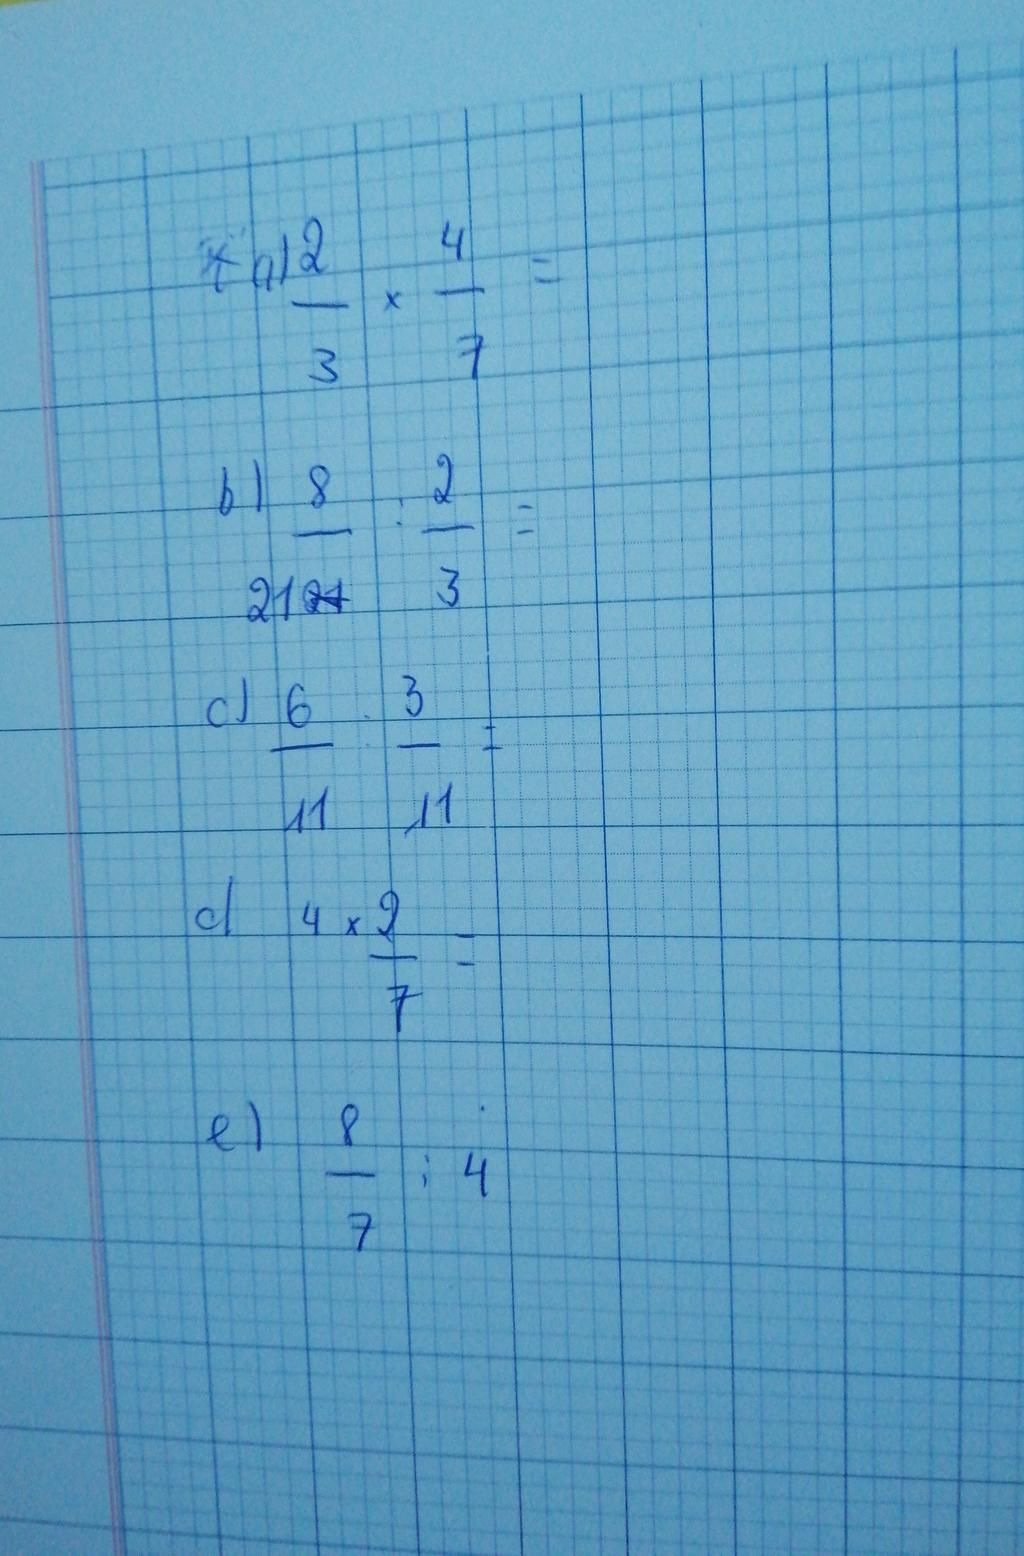 a) 2/3 × 4/7 =
b) 8/21 : 2/3 =
c) 6/11 : 3/11 =
d 4 × 2/7 =
e) 8/7 : 4